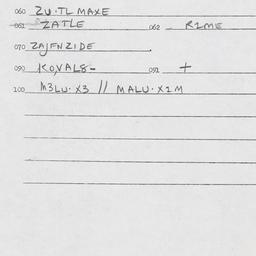 060 ZU·TL MAXE
061 ZATLE 062 RIME
070 ZAJENZIDE
090 KO,VAL8- 091 +
100 M3LU·X3 // MALU·X1M